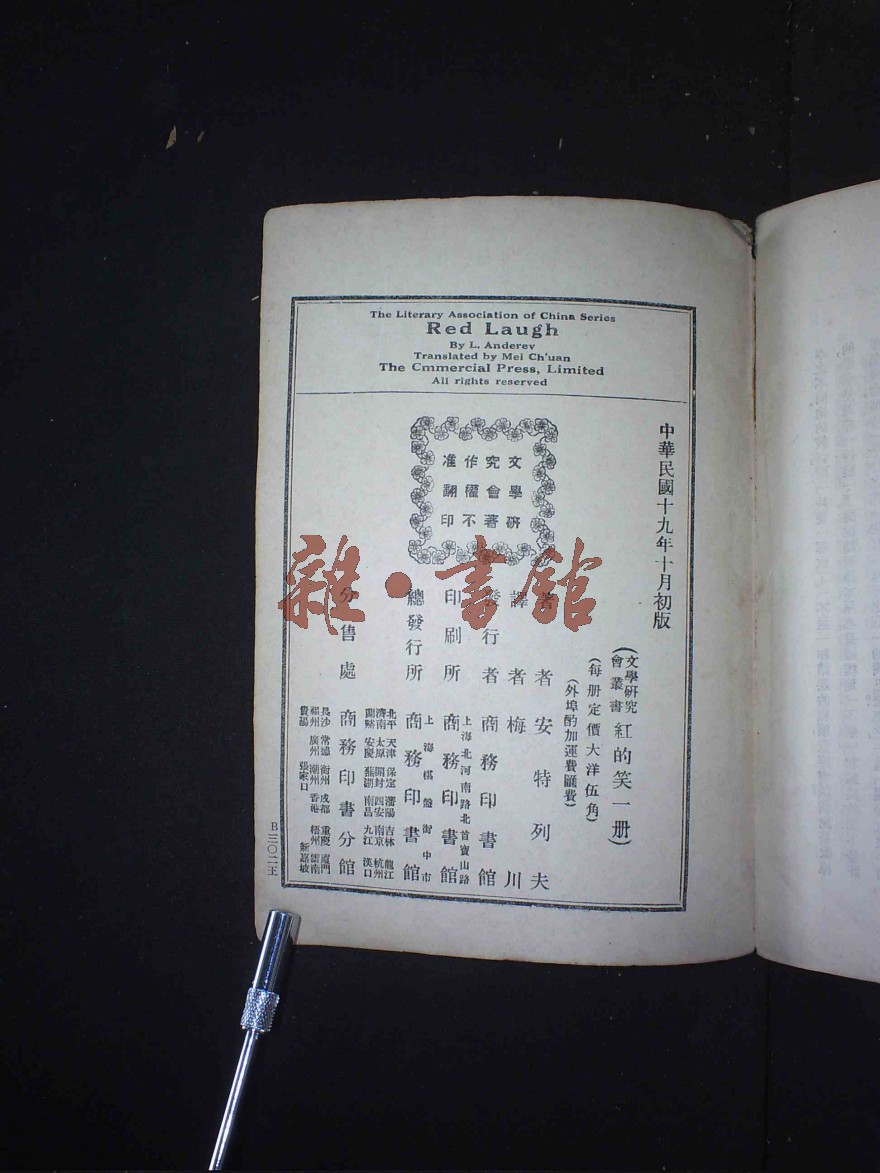 The Literary Association of China Series
Red Laugh
By L. Anderev
Translated by Mei Ch'uan
The Cmmercial Press, Limited
All rights reserved
中華民國十九年十月初版
文學研
究會著
作權不
准翻印
(文學研究會叢書)紅的笑一册)
(每册定價大洋伍角)
(外埠酌加運費匯費)
著者 安特列夫
譯者 梅川
發行者 商務印書館
印刷所 上海北河南路北首寶山路 商務印書館
總發行所 上海棋盤街中市 商務印書館
分售處 商務印書分館
北平 天津 保定 瀋陽 吉林 龍江
濟南 太原 開封 西安 南京 杭州
蘭谿 安慶 蕪湖 南昌 九江 漢口
長沙 常德 衡州 成都 重慶 廈門
福州 廣州 潮州 香港 梧州 雲南
貴陽 張家口 新嘉坡
B三〇二王
雜·書館